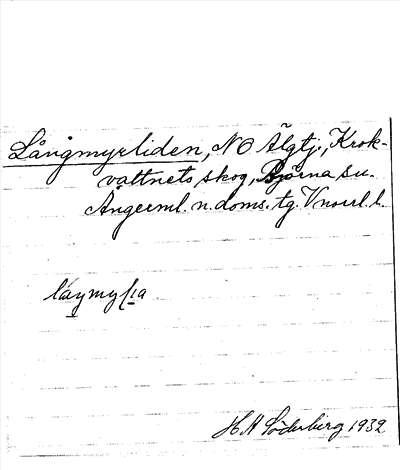 Långmyrliden, NO Älgtj., Krok-
vattnets skog, Björna su.
Ångerml. n. doms. tg. Vnorrl. l.
H H Söderberg 1932